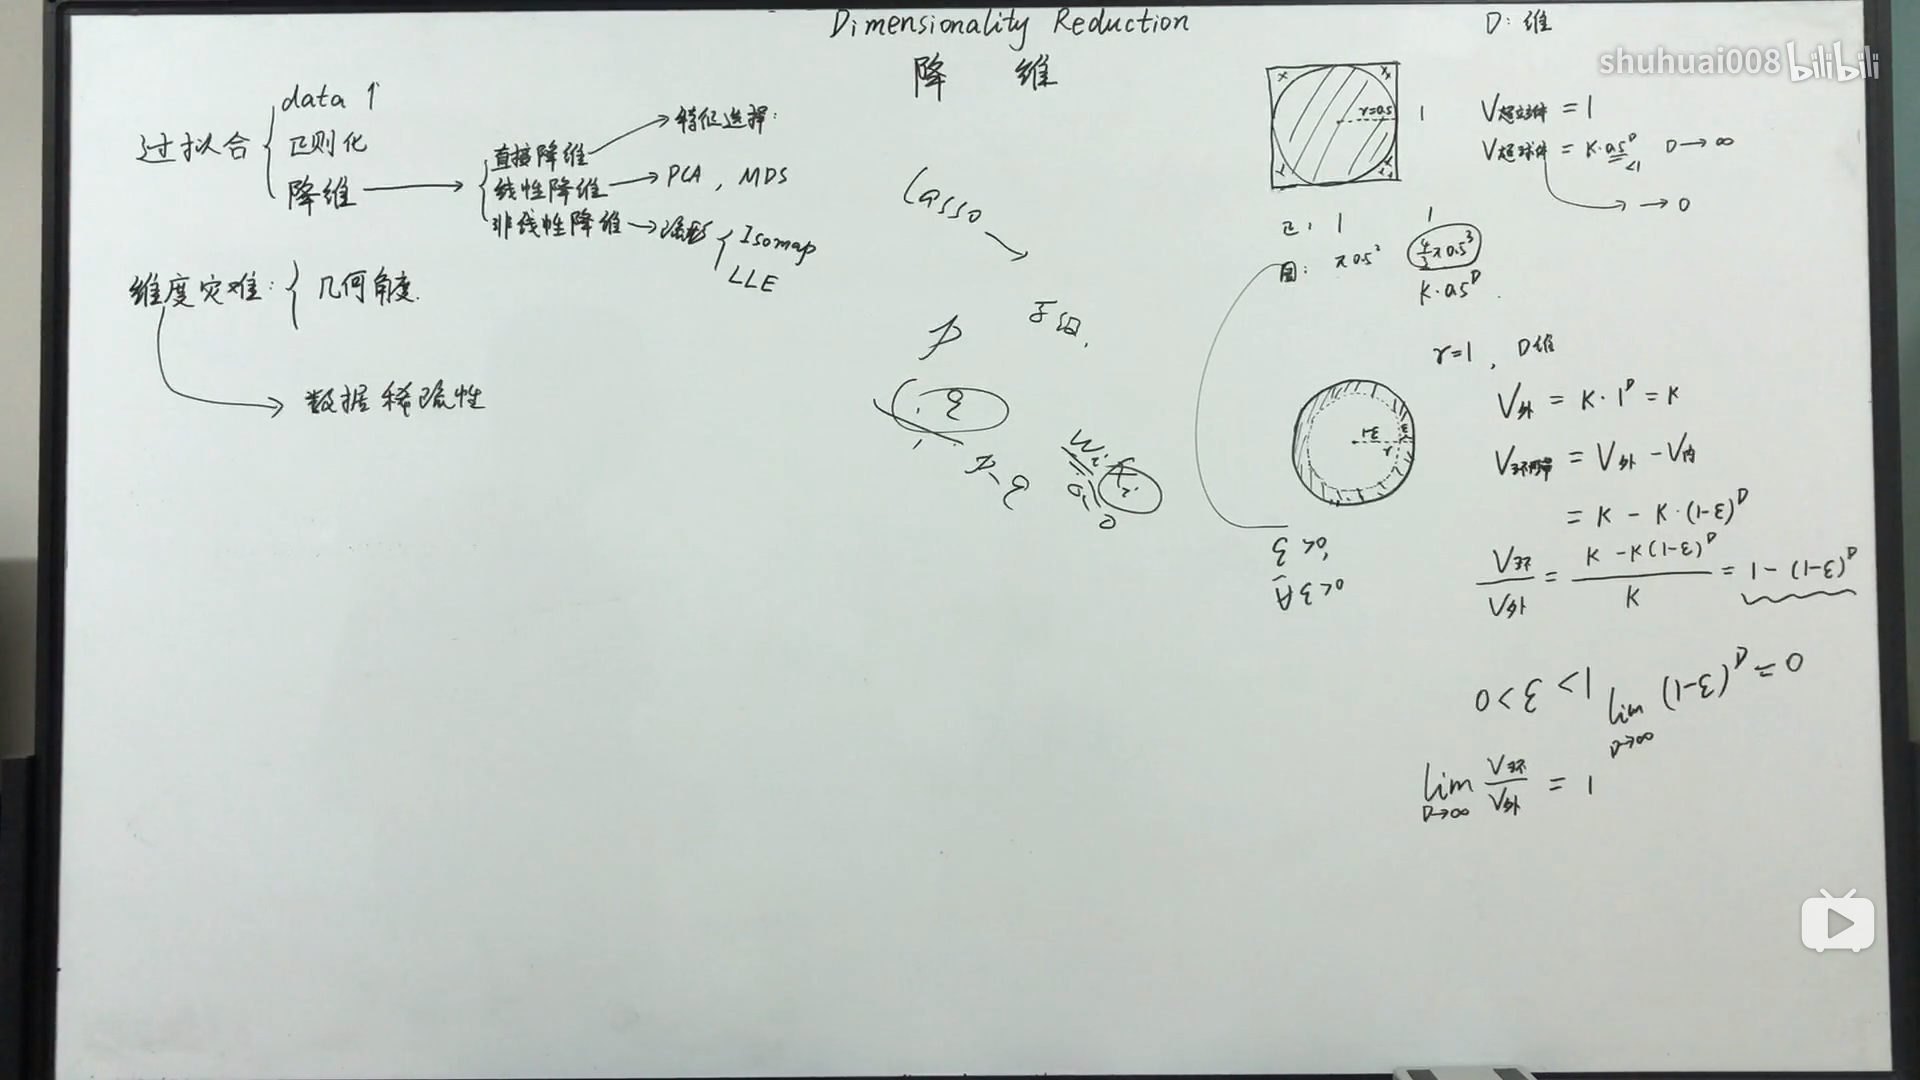 Dimensionality Reduction
降 维
D: 维
shuhuai008 bilibili
过拟合
data ↑
正则化
降维
直接降维 → 特征选择:
线性降维 → PCA, MDS
非线性降维 → 流形
Isomap
LLE
维度灾难: 几何角度.
数据稀疏性
Lasso
P
q
P-q
r=0.5
1
V超立方体 = 1
V超球体 = K·0.5^D D→∞
<1
→ 0
正: 1 1
圆: π0.5² 4/3 π0.5³
K·0.5^D
r=1, D维
1-ε
ε
r
V外 = K·1^D = K
V环形带 = V外 - V内
= K - K·(1-ε)^D
V环/V外 = K - K(1-ε)^D / K = 1 - (1-ε)^D
0<ε<1 lim D→∞ (1-ε)^D = 0
lim D→∞ V环/V外 = 1